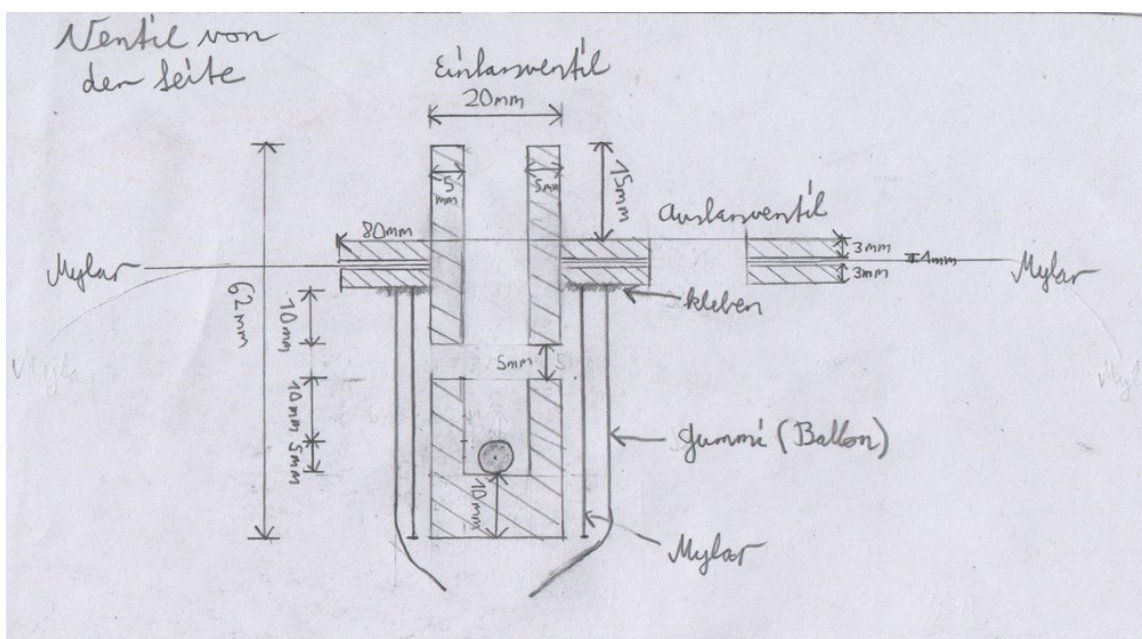 Ventil von
der Seite
Einlassventil
20mm
5
mm
5mm
15mm
Auslassventil
80mm
3mm
1mm
3mm
Mylar
Mylar
62mm
10mm
kleben
5mm
10mm
5mm
Gummi (Ballon)
10mm
Mylar
Mylar